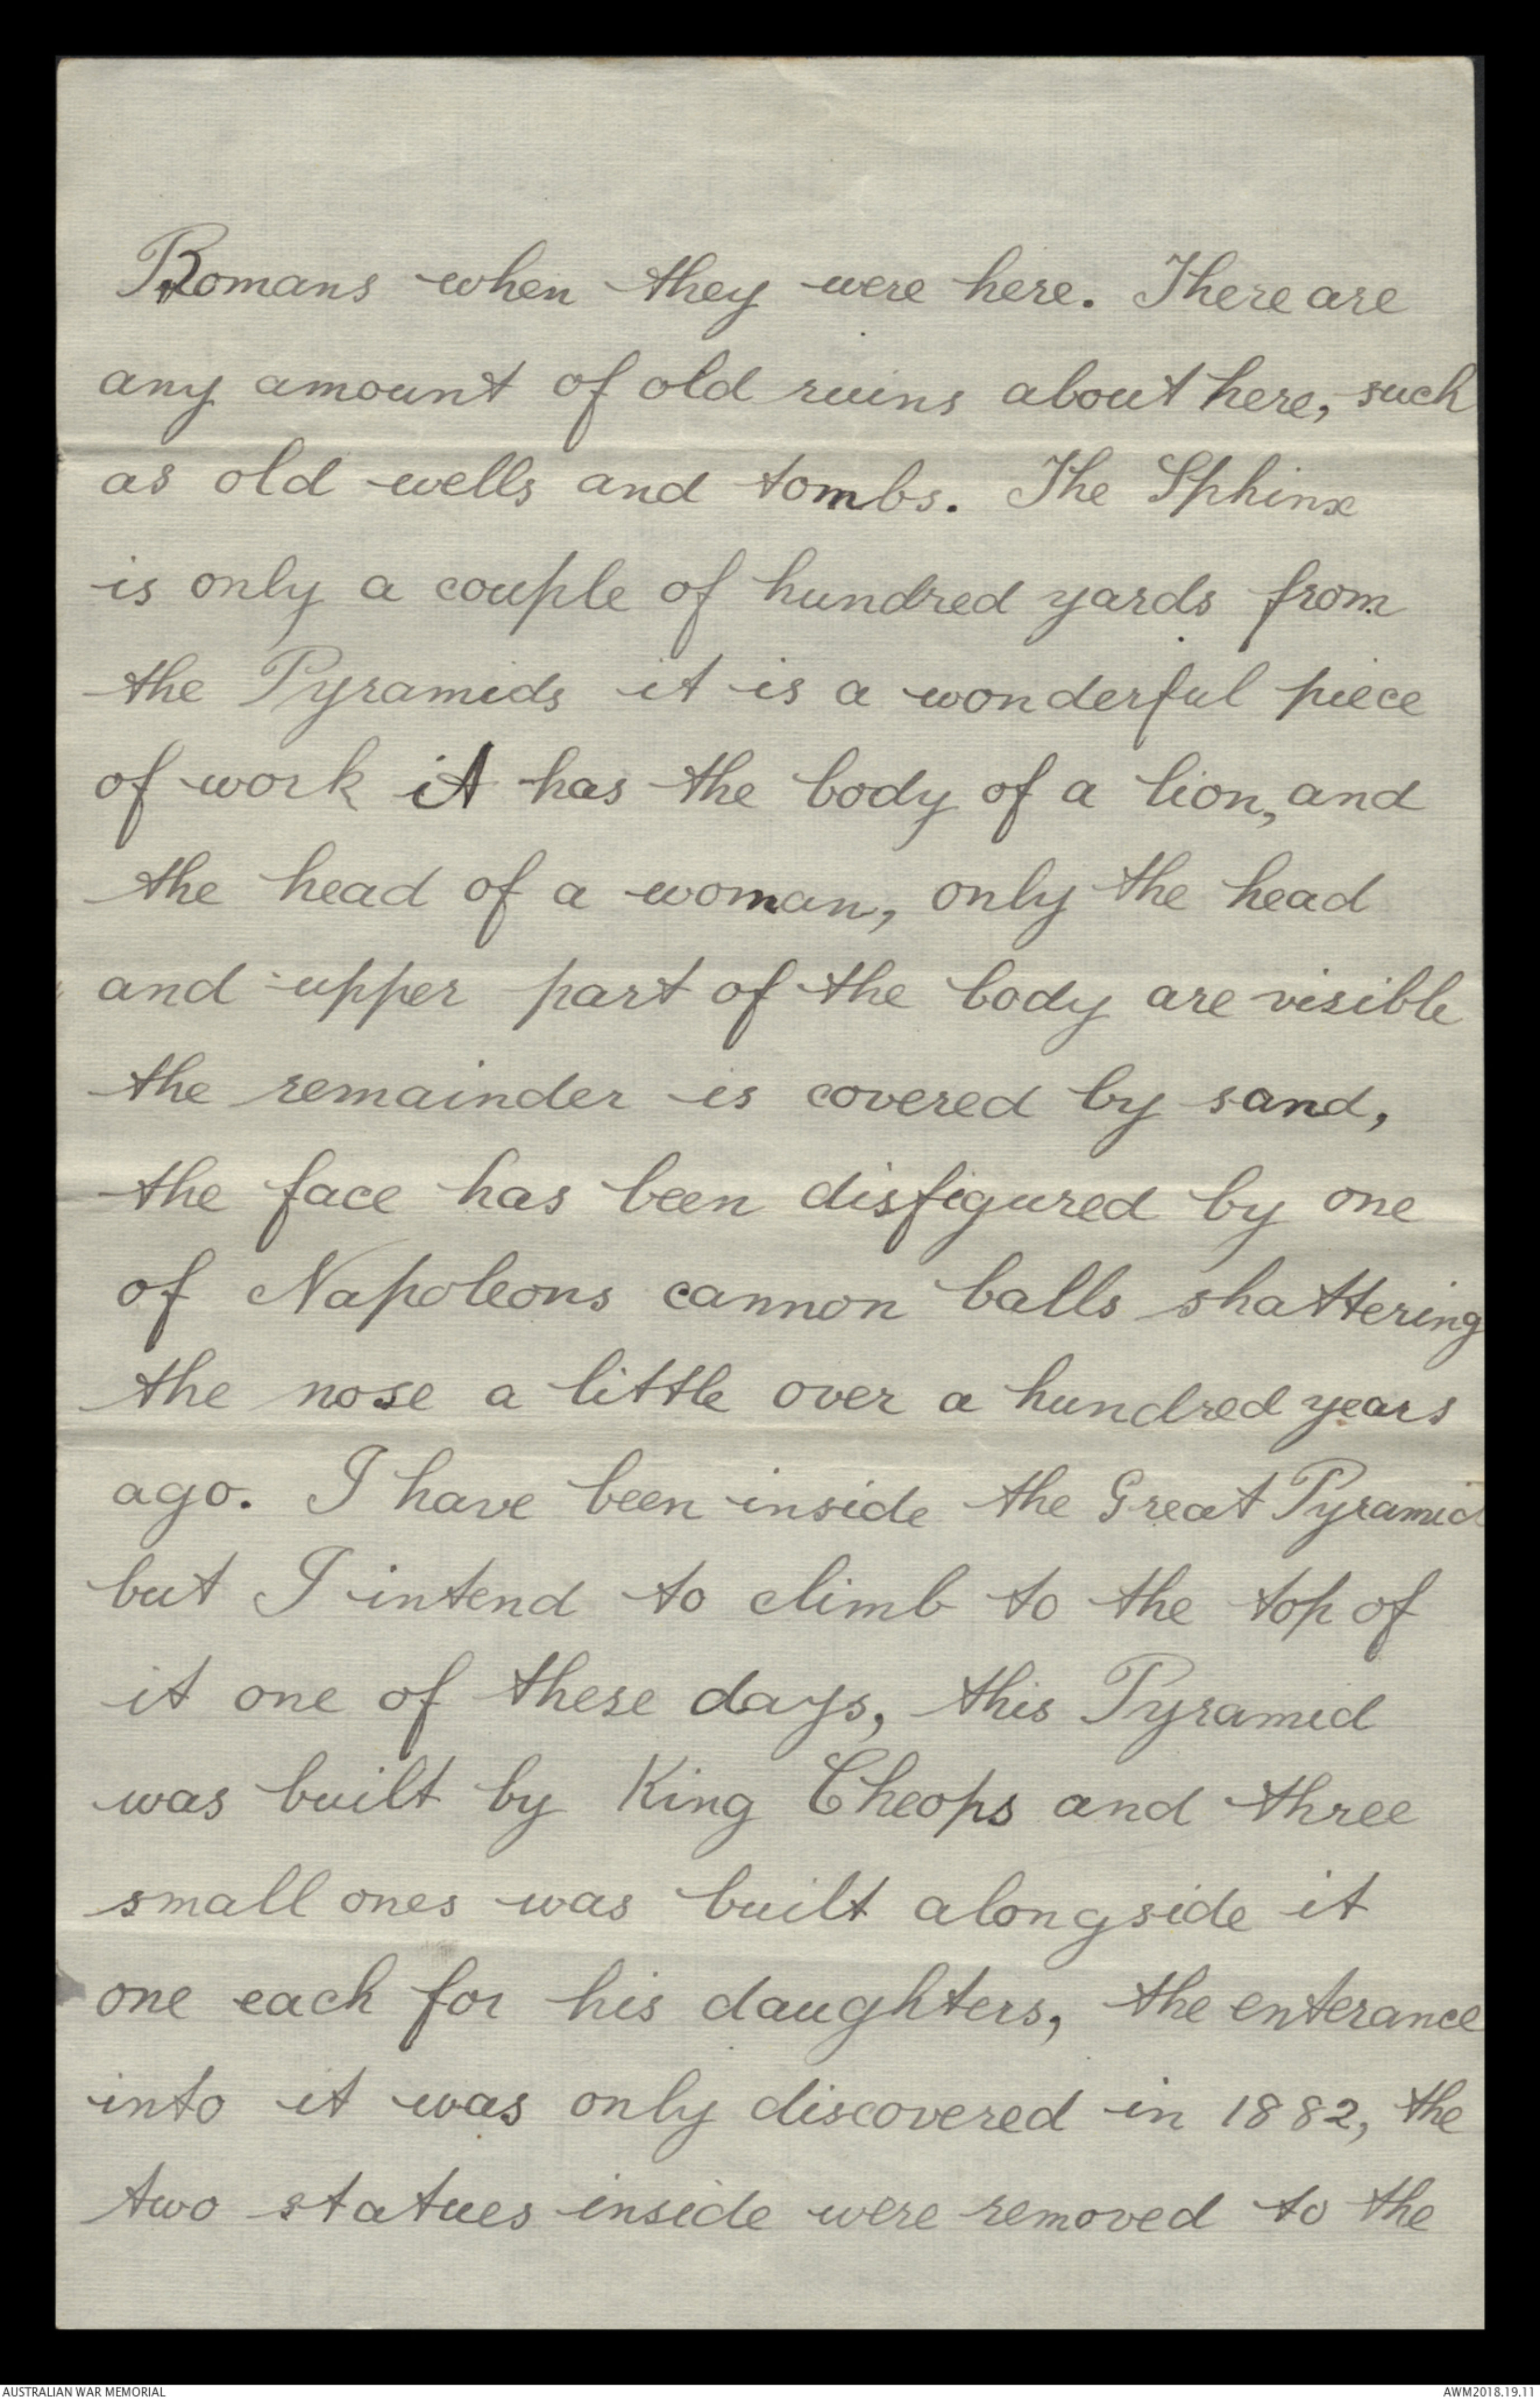 Romans when they were here. There are
any amount of old ruins about here, such
as old wells and tombs. The Sphinx
is only a couple of hundred yards from
the Pyramids it is a wonderful piece
of work it has the body of a lion, and
the head of a woman, only the head
and upper part of the body are visible
the remainder is covered by sand,
the face has been disfigured by one
of Napoleons cannon balls shattering
the nose a little over a hundred years
ago. I have been inside the Great Pyramid
but I intend to climb to the top of
it one of these days, this Pyramid
was built by King Cheops and three
small ones was built alongside it
one each for his daughters, the enterance
into it was only discovered in 1882, the
two statues inside were removed to the
AUSTRALIAN WAR MEMORIAL
AWM2018.19.11